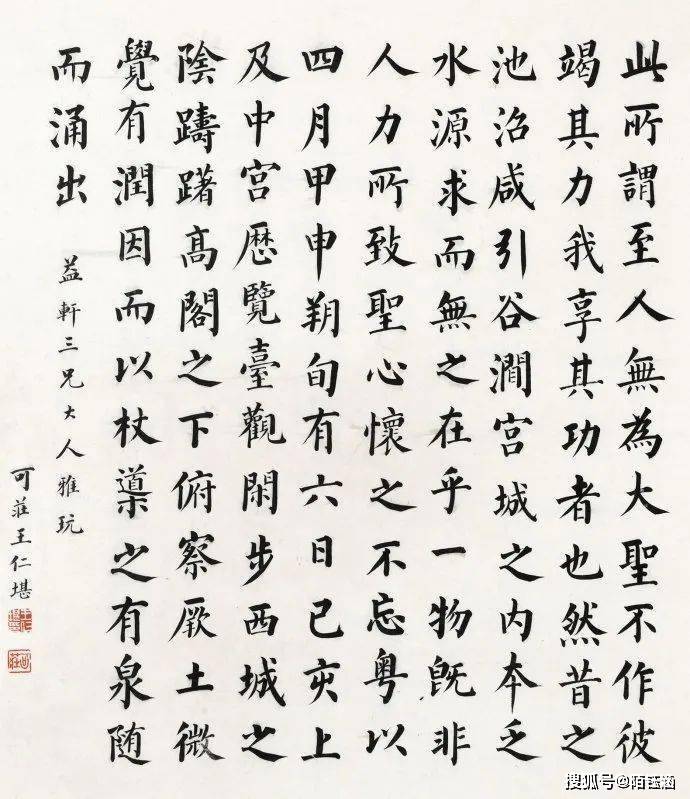 此所謂至人無為大聖不作彼
竭其力我享其功者也然昔之
池沼咸引谷澗宮城之内本乏
水源求而無之在乎一物既非
人力所致聖心懷之不忘粤以
四月甲申朔旬有六日己亥上
及中宮歷覽臺觀閑步西城之
陰躊躇高閣之下俯察厥土微
覺有潤因而以杖導之有泉随
而涌出
益軒三兄大人雅玩
可莊王仁堪
搜狐号@陌钰涵